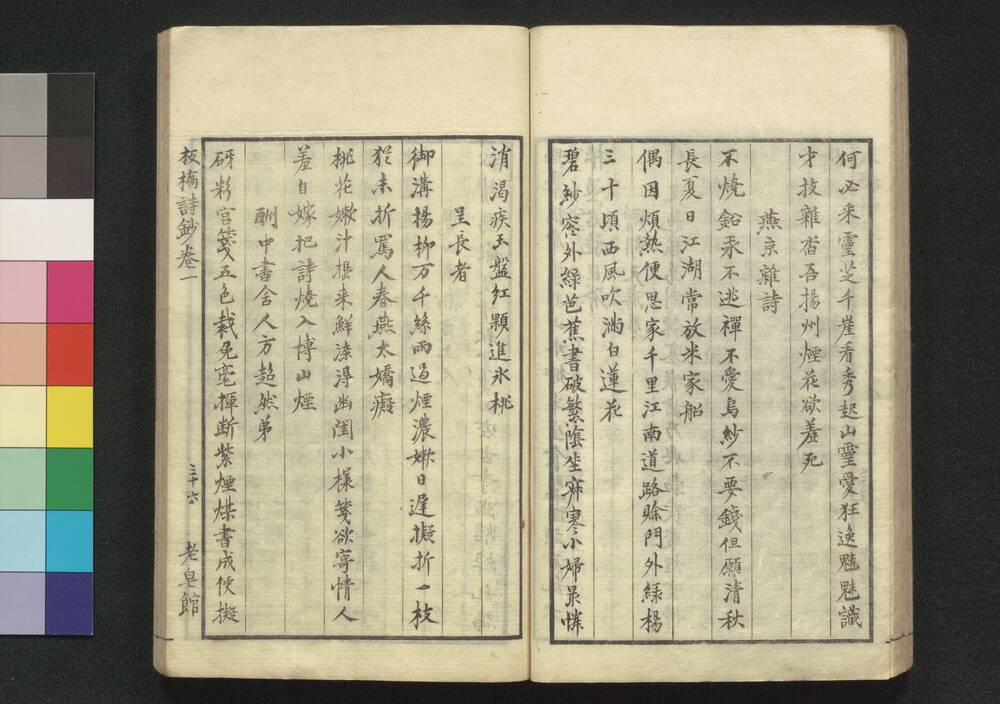 何必采靈芝千崖看秀起山靈愛狂逸魑魅識
才技雜沓吾揚州煙花欲羞死
燕京雜詩
不燒鉛汞不逃禪不愛烏紗不要錢但願清秋
長夏日江湖常放米家船
偶因煩熱便思家千里江南道路賖門外綠楊
三十頃西風吹滿白蓮花
碧紗窓外綠芭蕉書破繁陰坐寂寥小婦最憐
消渴疾玉盤紅顆進氷桃
呈長者
御溝楊柳万千絲雨過煙濃嫰日遲擬折一枝
猶未折罵人春燕太嬌癡
桃花嫰汁搗来鮮染淂幽閨小樣箋欲寄情人
羞自嫁把詩燒入博山煙
酬中書舍人方超然弟
砑粉宮箋五色裁兔毫揮断紫煙煤書成便擬
板橋詩鈔卷一
三十六
老皂館